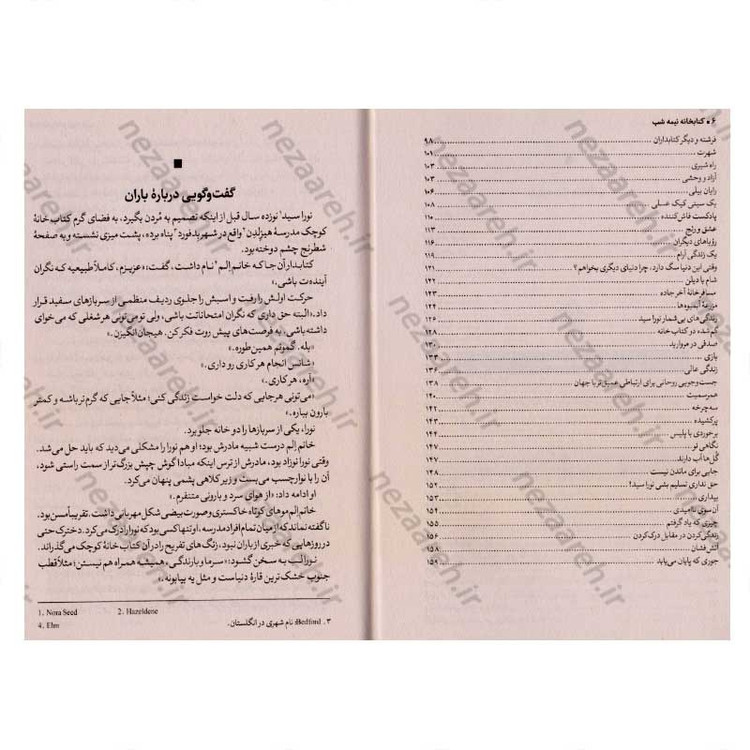 ۶ • کتابخانه نیمه شب
فرشته و دیگر کتابداران ۹۸
شهرت ۱۰۱
راه شیری ۱۰۳
آزاد و وحشی ۱۰۳
رایان بیلی ۱۰۶
یک سینی کیک عسلی ۱۰۸
پادکست فاش‌کننده ۱۱۰
عشق و رنج ۱۱۶
رؤیاهای دیگران ۱۱۹
یک زندگی آرام
وقتی این دنیا سگ دارد، چرا دنیای دیگری بخواهم؟ ۱۲۱
شام با دیلن ۱۲۲
مسافرخانهٔ آخر جاده ۱۲۳
مزرعهٔ آبمیوه‌ها
زندگی‌های بی‌شمار نورا سید ۱۲۶
گم‌شده در کتاب خانه ۱۲۸
صدفی در مروارید
بازی ۱۳۳
زندگی عالی
جست‌وجویی روحانی برای ارتباطی عمیق‌تر با جهان ۱۳۸
همرسمیت ۱۴۰
سه‌چرخه ۱۴۲
پرکشیده
برخوردی با پلیس ۱۴۴
نگاهی نو
گل‌ها آب دارند ۱۴۷
جایی برای ماندن نیست ۱۴۸
حق نداری تسلیم بشی نورا سید!
بیداری
آن سوی ناامیدی
چیزی که یاد گرفتم ۱۵۵
زندگی‌کردن در مقابل درک‌کردن ۱۵۶
آتش‌فشان ۱۵۸
جوری که پایان می‌یابد
گفت‌وگویی دربارهٔ باران
نورا سید¹ نوزده سال قبل از اینکه تصمیم به مُردن بگیرد، به فضای گرم کتاب خانهٔ
کوچک مدرسهٔ هیزلدن² واقع در شهر بِدفورد³ پناه برده، پشت میزی نشسته و به صفحهٔ
شطرنج چشم دوخته بود.
کتابدار آن جا که خانم اِلم⁴ نام داشت، گفت: «عزیزم، کاملاً طبیعیه که نگران
آینده‌ت باشی.»
حرکت اولش را رفت و اسبش را جلوی ردیف منظمی از سربازهای سفید قرار
داد. «البته حق داری که نگران امتحاناتت باشی، ولی تو می‌تونی هر شغلی که می‌خوای
داشته باشی. به فرصت‌های پیش روت فکر کن. هیجان‌انگیزن.»
«بله. گمونم همین‌طوره.»
«شانس انجام هر کاری رو داری.»
«آره، هر کاری.»
«می‌تونی هر جایی که دلت خواست زندگی کنی؛ مثلاً جایی که گرم‌تر باشه و کمتر
بارون بیاره.»
نورا، یکی از سربازها را دو خانه جلو برد.
خانم اِلم درست شبیه مادرش بود؛ او هم نورا را مشکلی می‌دید که باید حل می‌شد.
وقتی نورا نوزاد بود، مادرش از ترس اینکه مبادا گوش چپش بزرگ‌تر از سمت راستی شود،
آن را با نوارچسب می‌بست و زیر کلاهی پشمی پنهان می‌کرد.
او ادامه داد: «از هوای سرد و بارونی متنفرم.»
خانم اِلم موهای کوتاه خاکستری و صورت بیضی شکل مهربانی داشت. تقریباً مسن بود.
ناگفته نماند که از میان تمام افراد مدرسه، او تنها کسی بود که نورا را درک می‌کرد. دخترک حتی
در روزهایی که خبری از باران نبود، زنگ‌های تفریح را در آن کتاب خانهٔ کوچک می‌گذراند.
نورا لب به سخن گشود: «سرما و بارندگی، همیشه همراه هم نیستن؛ مثلاً قطب
جنوب خشک‌ترین قارهٔ دنیاست و مثل یه بیابونه.»
1. Nora Seed 2. Hazeldene
۳. Bedford: نام شهری در انگلستان.
4. Elm
nezaareh.ir
nezaareh.ir
nezaareh.ir
nezaareh.ir
nezaareh.ir
nezaareh.ir